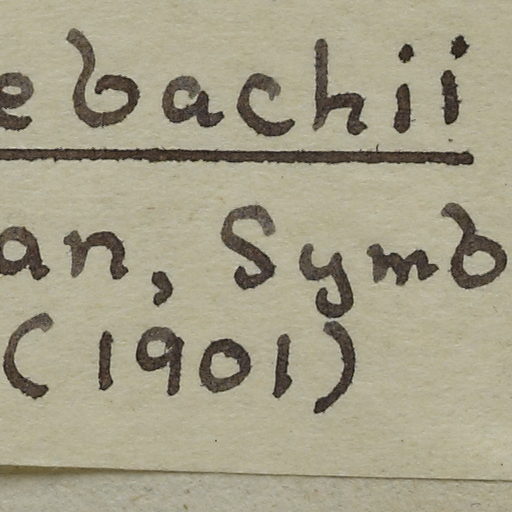 ebachii
an, Symb
(1901)